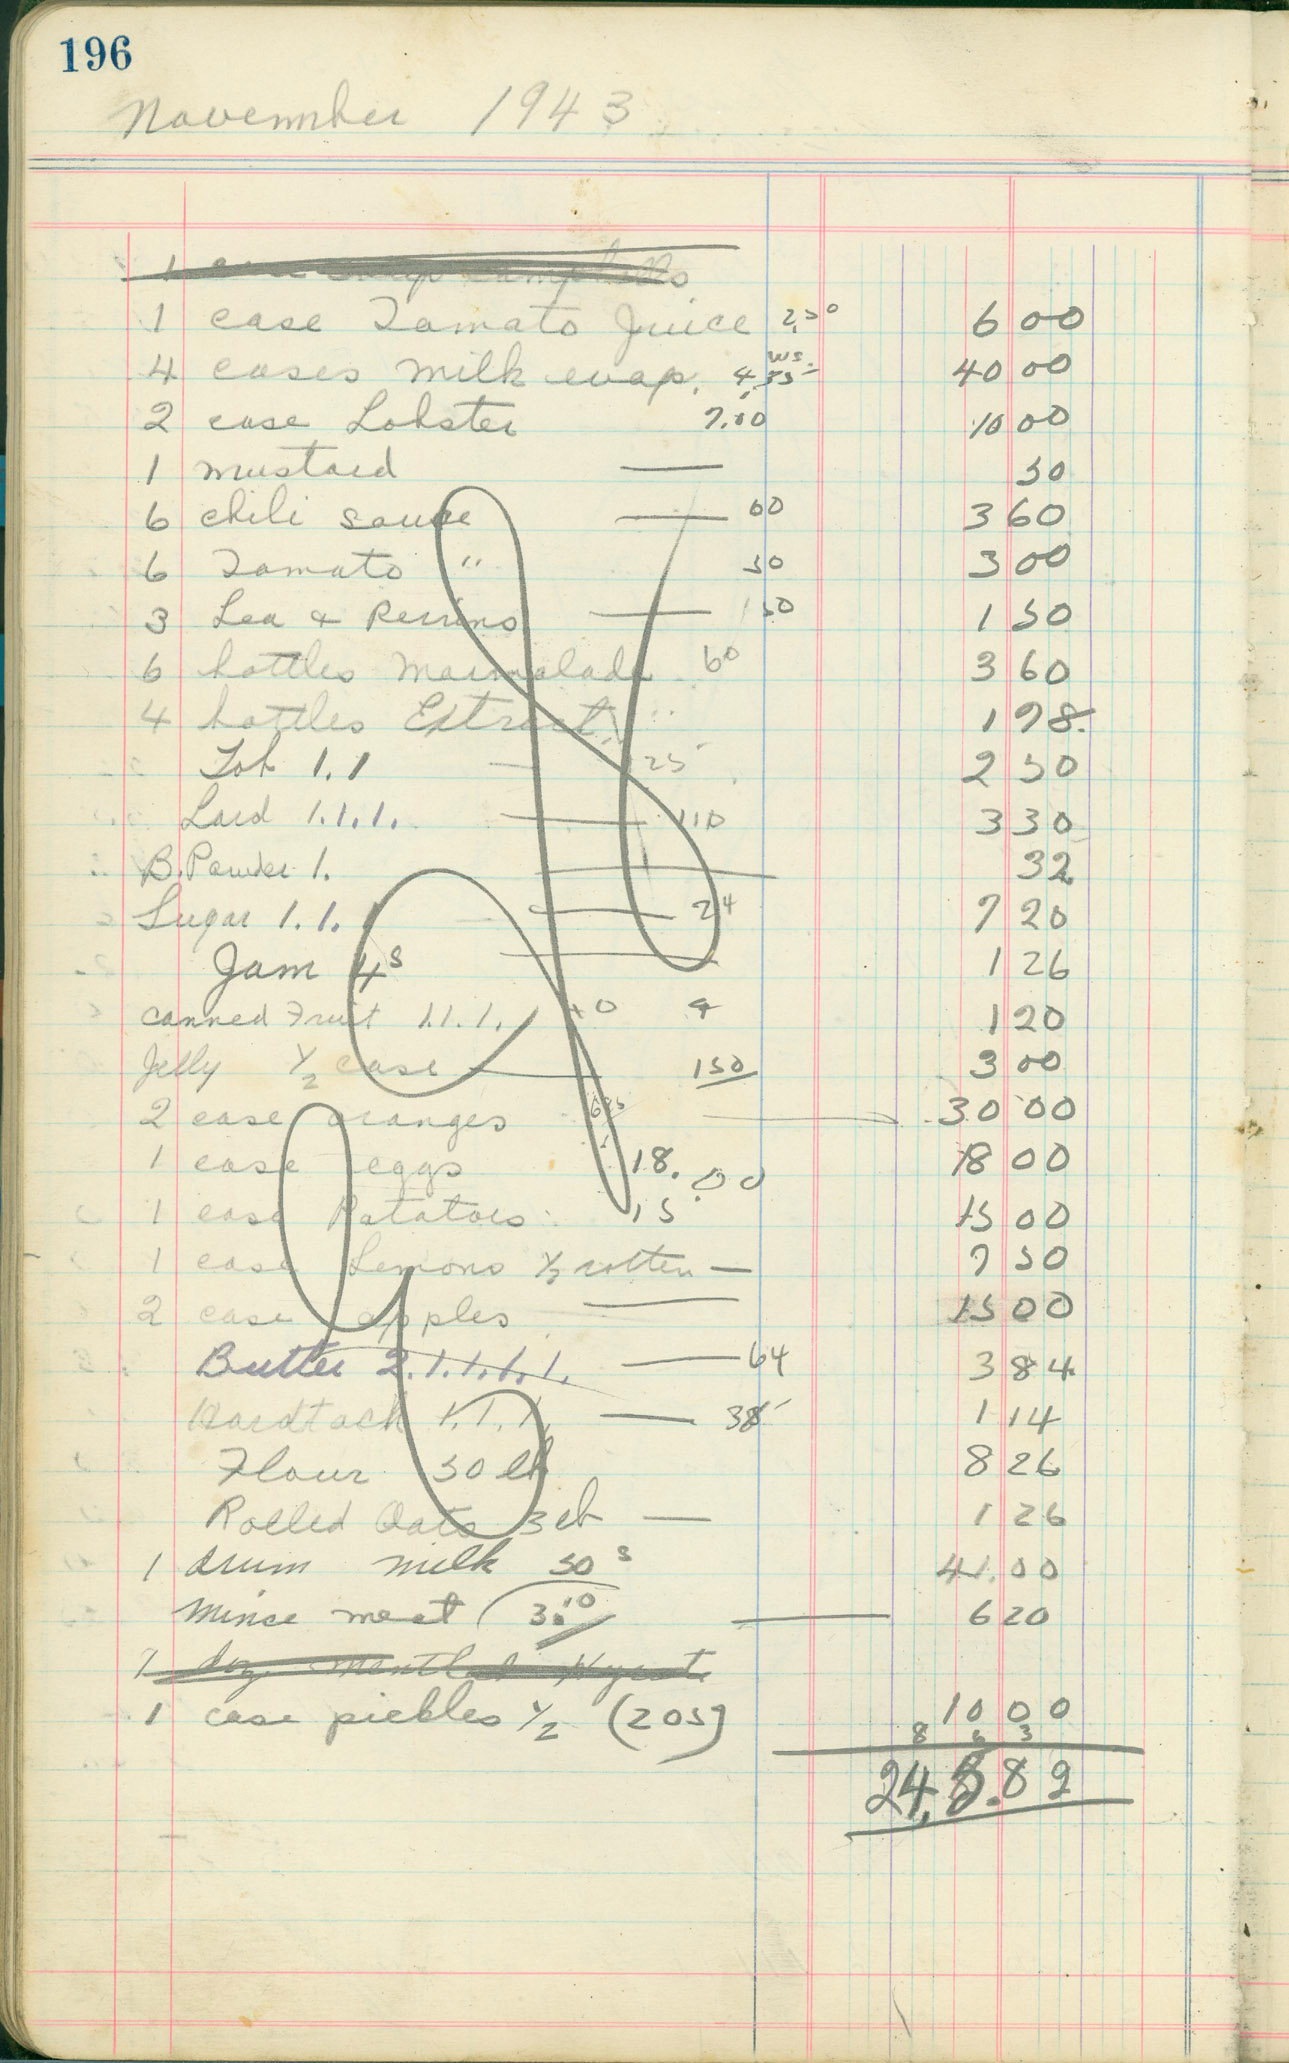 196
November 1943
1 case soups Campbells
1 case Tomato Juice 2,50 6 00
4 cases milk evap. 4,55 40 00
2 case Lobster 7.00 10 00
1 mustard — 50
6 chili sauce — 60 3 60
6 Tomato " 50 3 00
3 Lea & Perrins — 150 1 50
6 bottles Marmalade 60 3 60
4 bottles Extract 1 98
Tob 1.1 — 125 2 50
Lard 1.1.1. — 110 3 30
B. Powder 1. — 32
Sugar 1.1.1 — 24 7 20
Jam 4s — 1 26
canned Fruit 1.1.1. 40 4 1 20
Jelly 1/2 case — 150 3 00
2 case oranges — 30 00
1 case eggs 18.00 18 00
1 case Potatoes 15 15 00
1 case Lemons 1/3 rotten — 7 50
2 case apples — 15 00
Butter 2.1.1.1.1. — 64 3 84
Hardtack 1.1.1. — 38 1 14
Flour 50 lb 8 26
Rolled Oats 3 lb — 1 26
1 drum milk 50s 41.00
Mince meat (3.10 — 6 20
1 doz
1 case pickles 1/2 (20s) 10 00
8 5 3
245.82